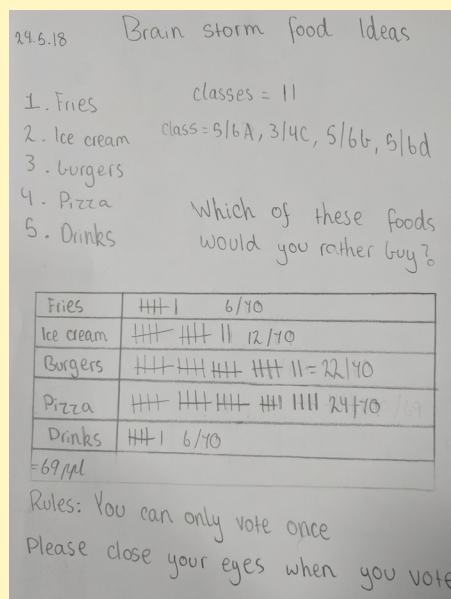 29.5.18 Brain storm food Ideas
1. Fries
2. Ice cream
3. burgers
4. Pizza
5. Drinks
classes = 11
class = 5/6A, 3/4C, 5/6b, 5/6d
Which of these foods
would you rather buy?
Fries 6/70
Ice cream 12/70
Burgers = 22/70
Pizza 24/70
Drinks 6/70
= 69 ppl
Rules: You can only vote once
Please close your eyes when you vote